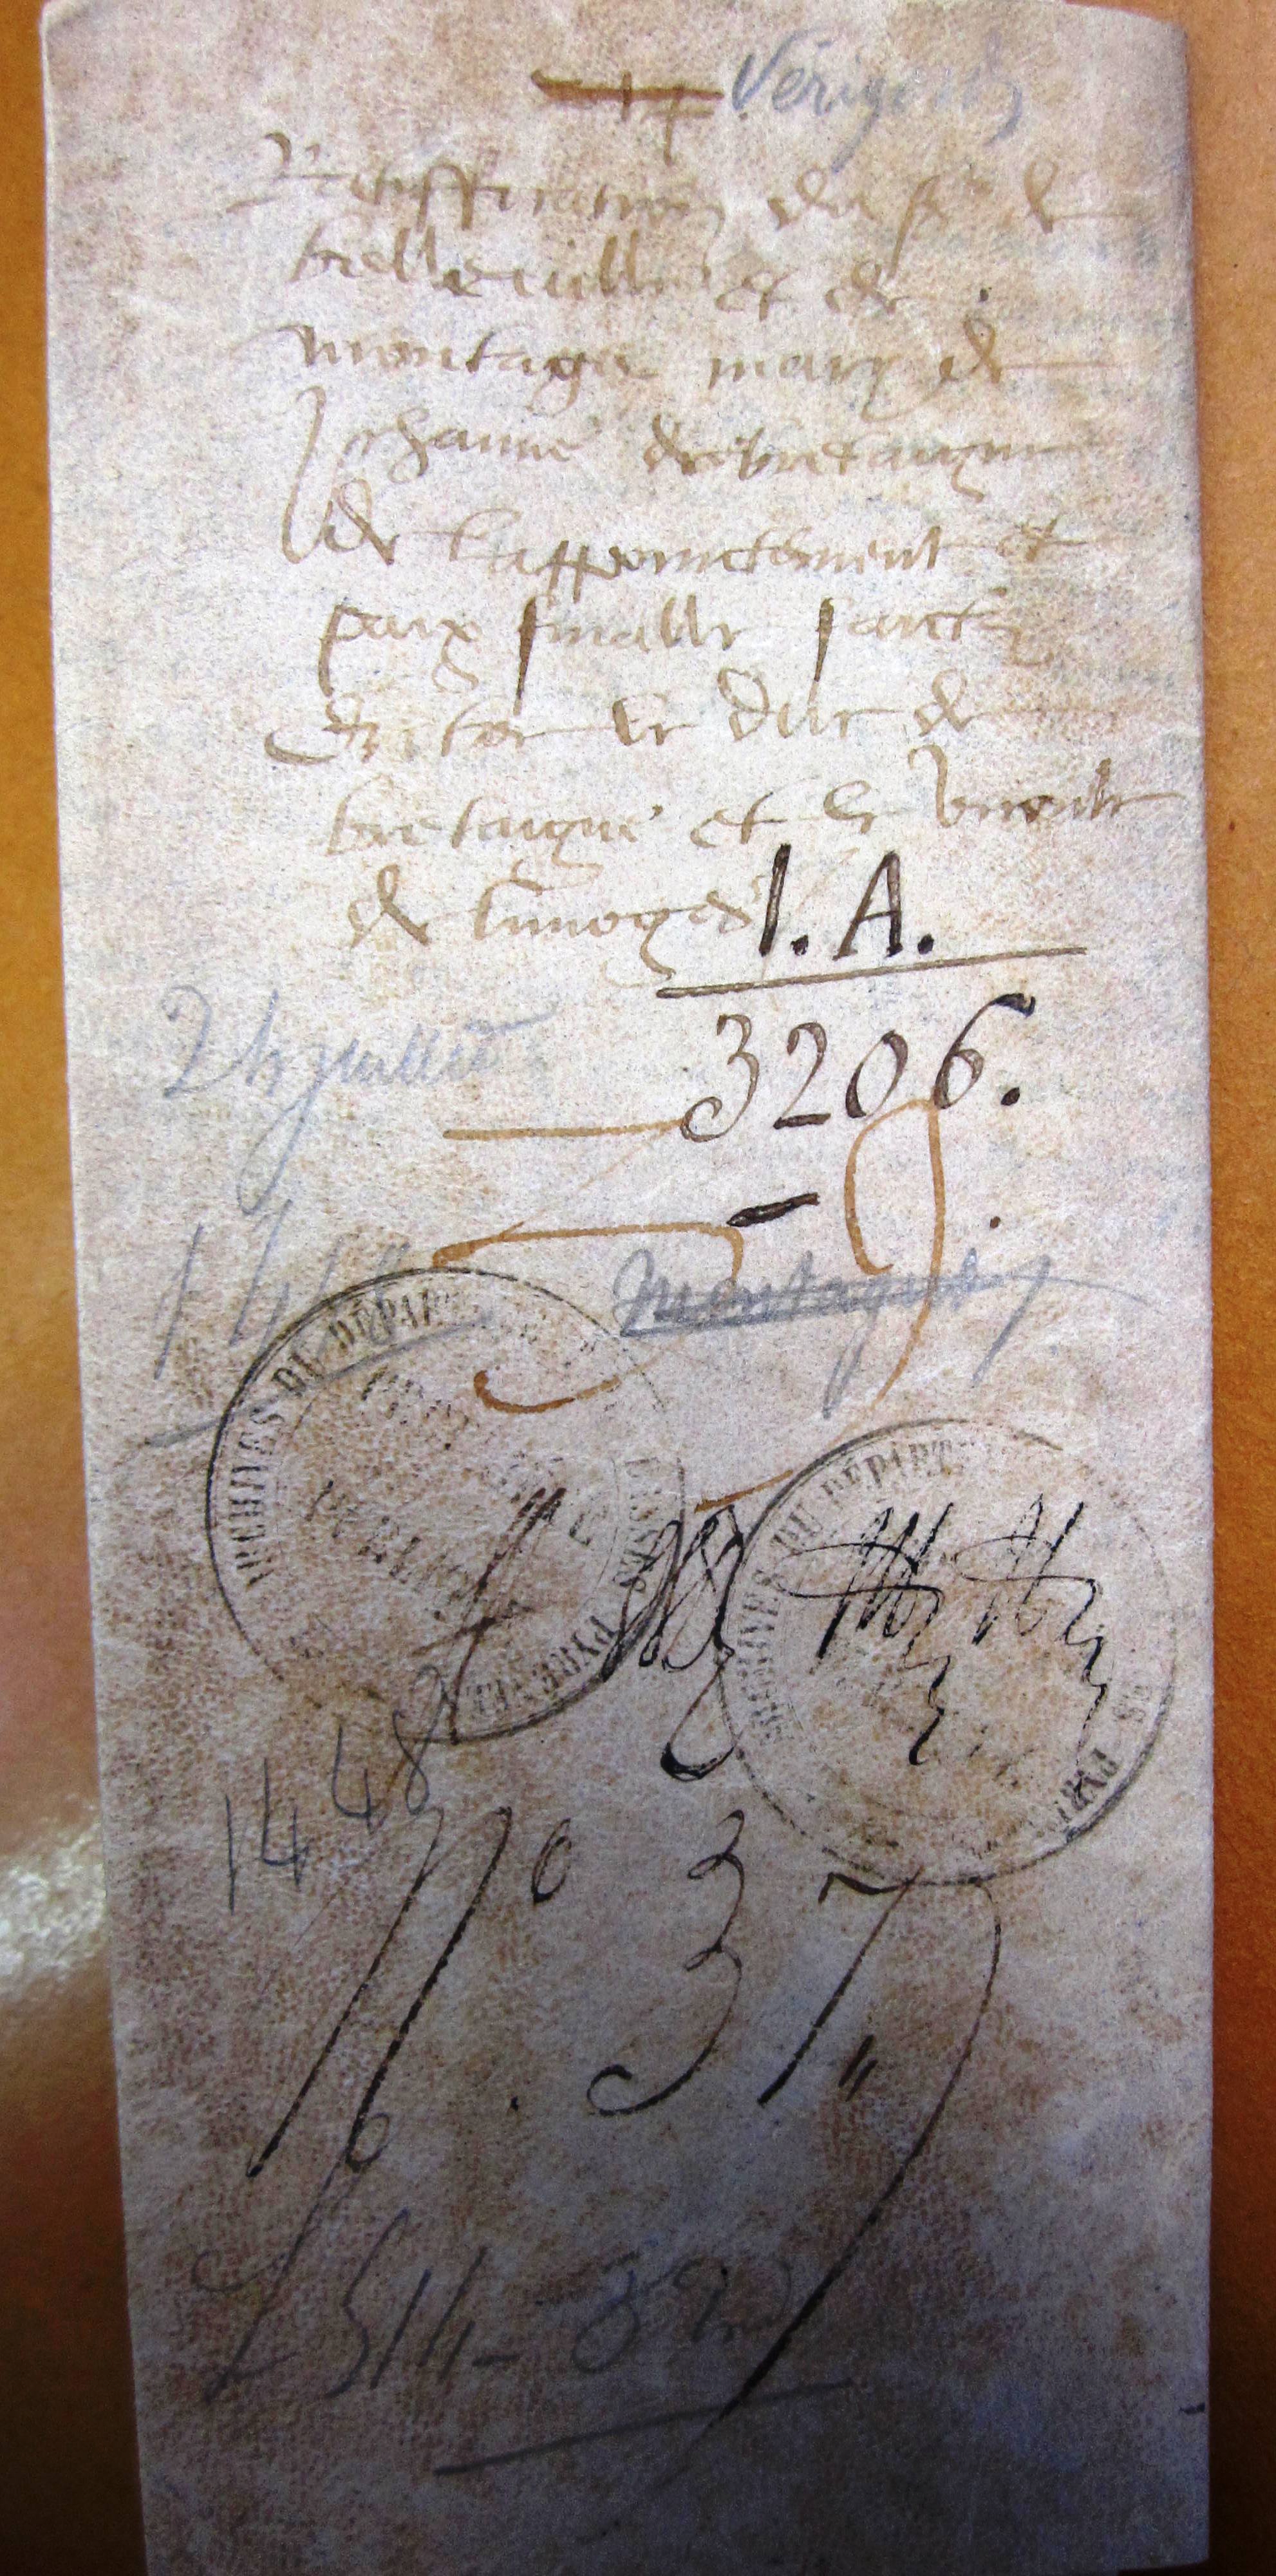 Périgord
Rattifficacion du sr de
belleville et de
montagu mary de
Jehanne de bretaigne
de lappoinctement et
paix finalle faicte
Entre le duc de
bretaigne et le viconte
de limoges
1. A.
3206.
24 juillet
144
Montaigut
ARCHIVES DU DÉPART
BASSES PYRÉNÉES
ARCHIVES DU DÉPART
PYRÉ
1448
No. 37
E 514